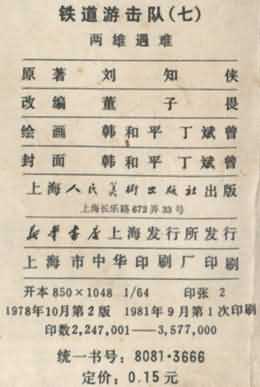 铁道游击队(七)
两雄遇难
原著 刘知侠
改编 董子畏
绘画 韩和平 丁斌曾
封面 韩和平 丁斌曾
上海人民美術出版社出版
上海长乐路672弄33号
新华書店上海发行所发行
上海市中华印刷厂印刷
开本850×1048 1/64 印张2
1978年10月第2版 1981年9月第1次印刷
印数2,247,001—3,577,000
统一书号:8081·3666
定价:0.15元